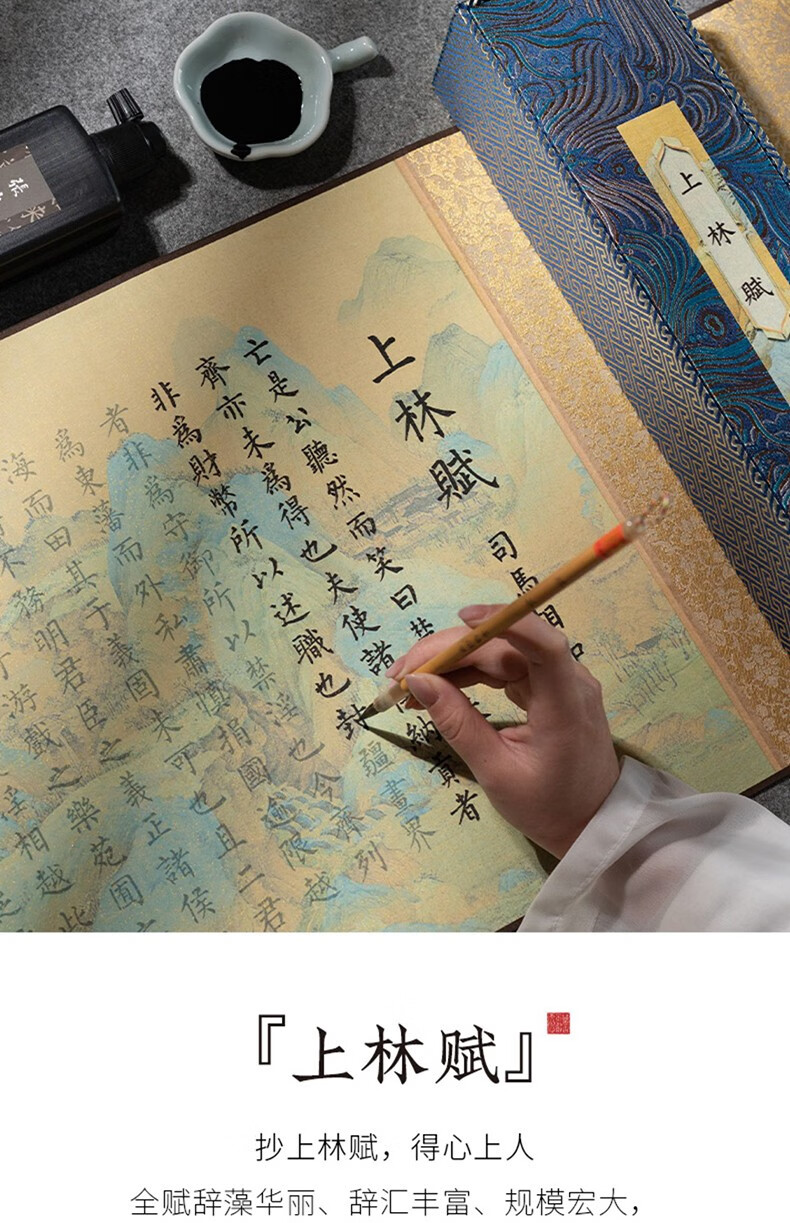 上林賦
張
上林賦
司馬相
亡是公聽然而笑曰楚
齊亦未為得也夫使諸納貢者
非為財幣所以述職也封疆畫界
者非為守御所以禁淫也今齊列
為東藩而外私肅慎捐國逾限越
海而田其于義固未可也且二君
不務明君臣之義正諸侯
于游戲之樂苑囿
淫相越此
『上林赋』
抄上林赋，得心上人
全赋辞藻华丽、辞汇丰富、规模宏大，